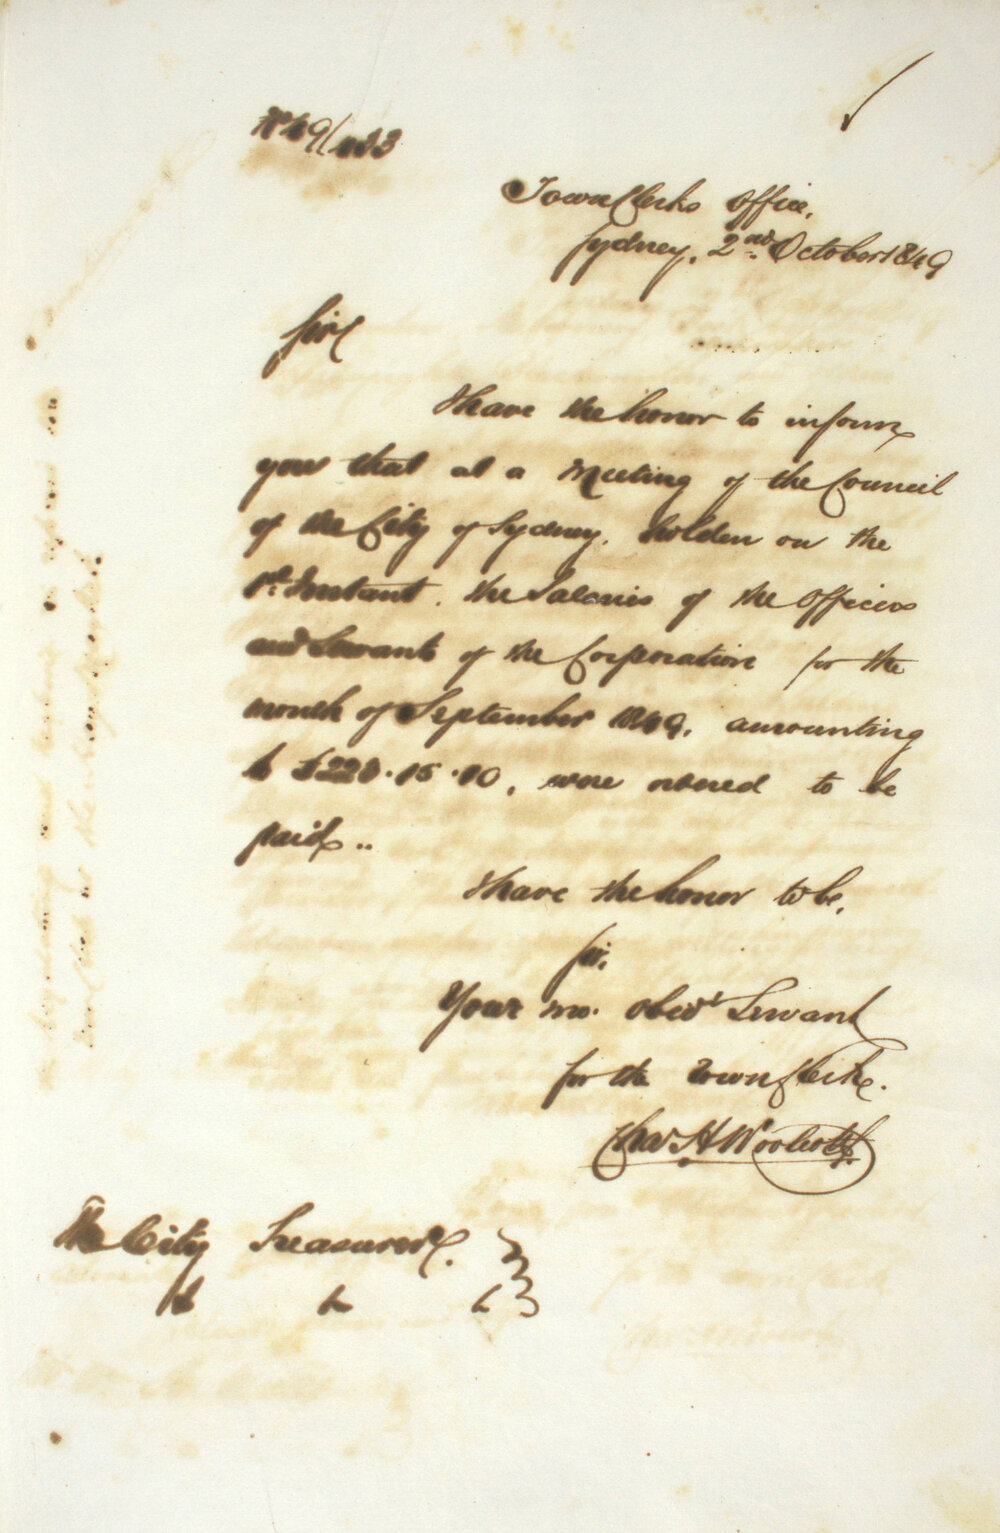 No 49/
Town Clerks Office,
Sydney, 2nd October 1849
Sir
I have the honor to inform
you that at a Meeting of the Council
of the City of Sydney, holden on the
1st Instant, the Salaries of the Officers
and Servants of the Corporation for the
month of September 1849, amounting
to £228.15.10, were ordered to be
paid..
I have the honor to be,
Sir,
Your mo. obedt Servant
for the Town Clerk.
Chas H Woolcott
The City Treasurer.
&c &c &c